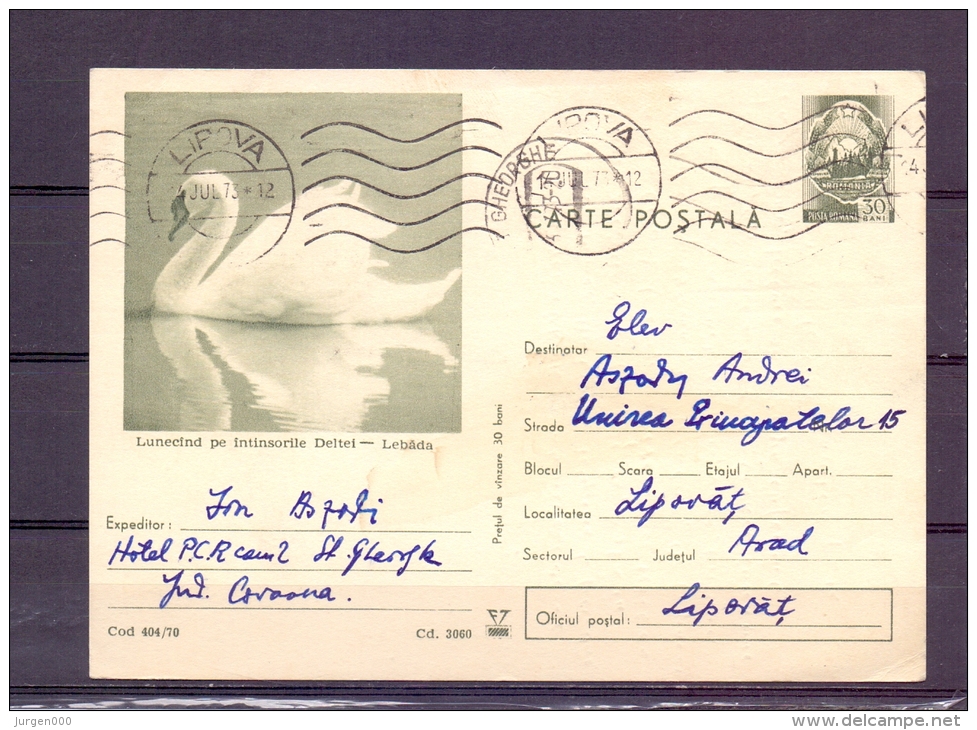 LIPOVA
JUL 73 * 12
LIPOVA
JUL 7 * 12
GHEORGHE
CARTE POȘTALĂ
ROMANIA
POSTA ROMANA
30 BANI
Lunecînd pe întinsorile Deltei — Lebăda
Expeditor: Ion Aszodi
Hotel P.C.R cam 2 Sf. Gheorghe
Jud. Covasna.
Cod 404/70
Cd. 3060
Prețul de vînzare 30 bani
Elev
Destinatar
Aszody Andrei
Strada Unirea Principatelor 15
Blocul Scara Etajul Apart.
Localitatea Lipovăț
Sectorul Județul Arad
Oficiul poștal: Lipovăț
jurgen000
www.delcampe.net